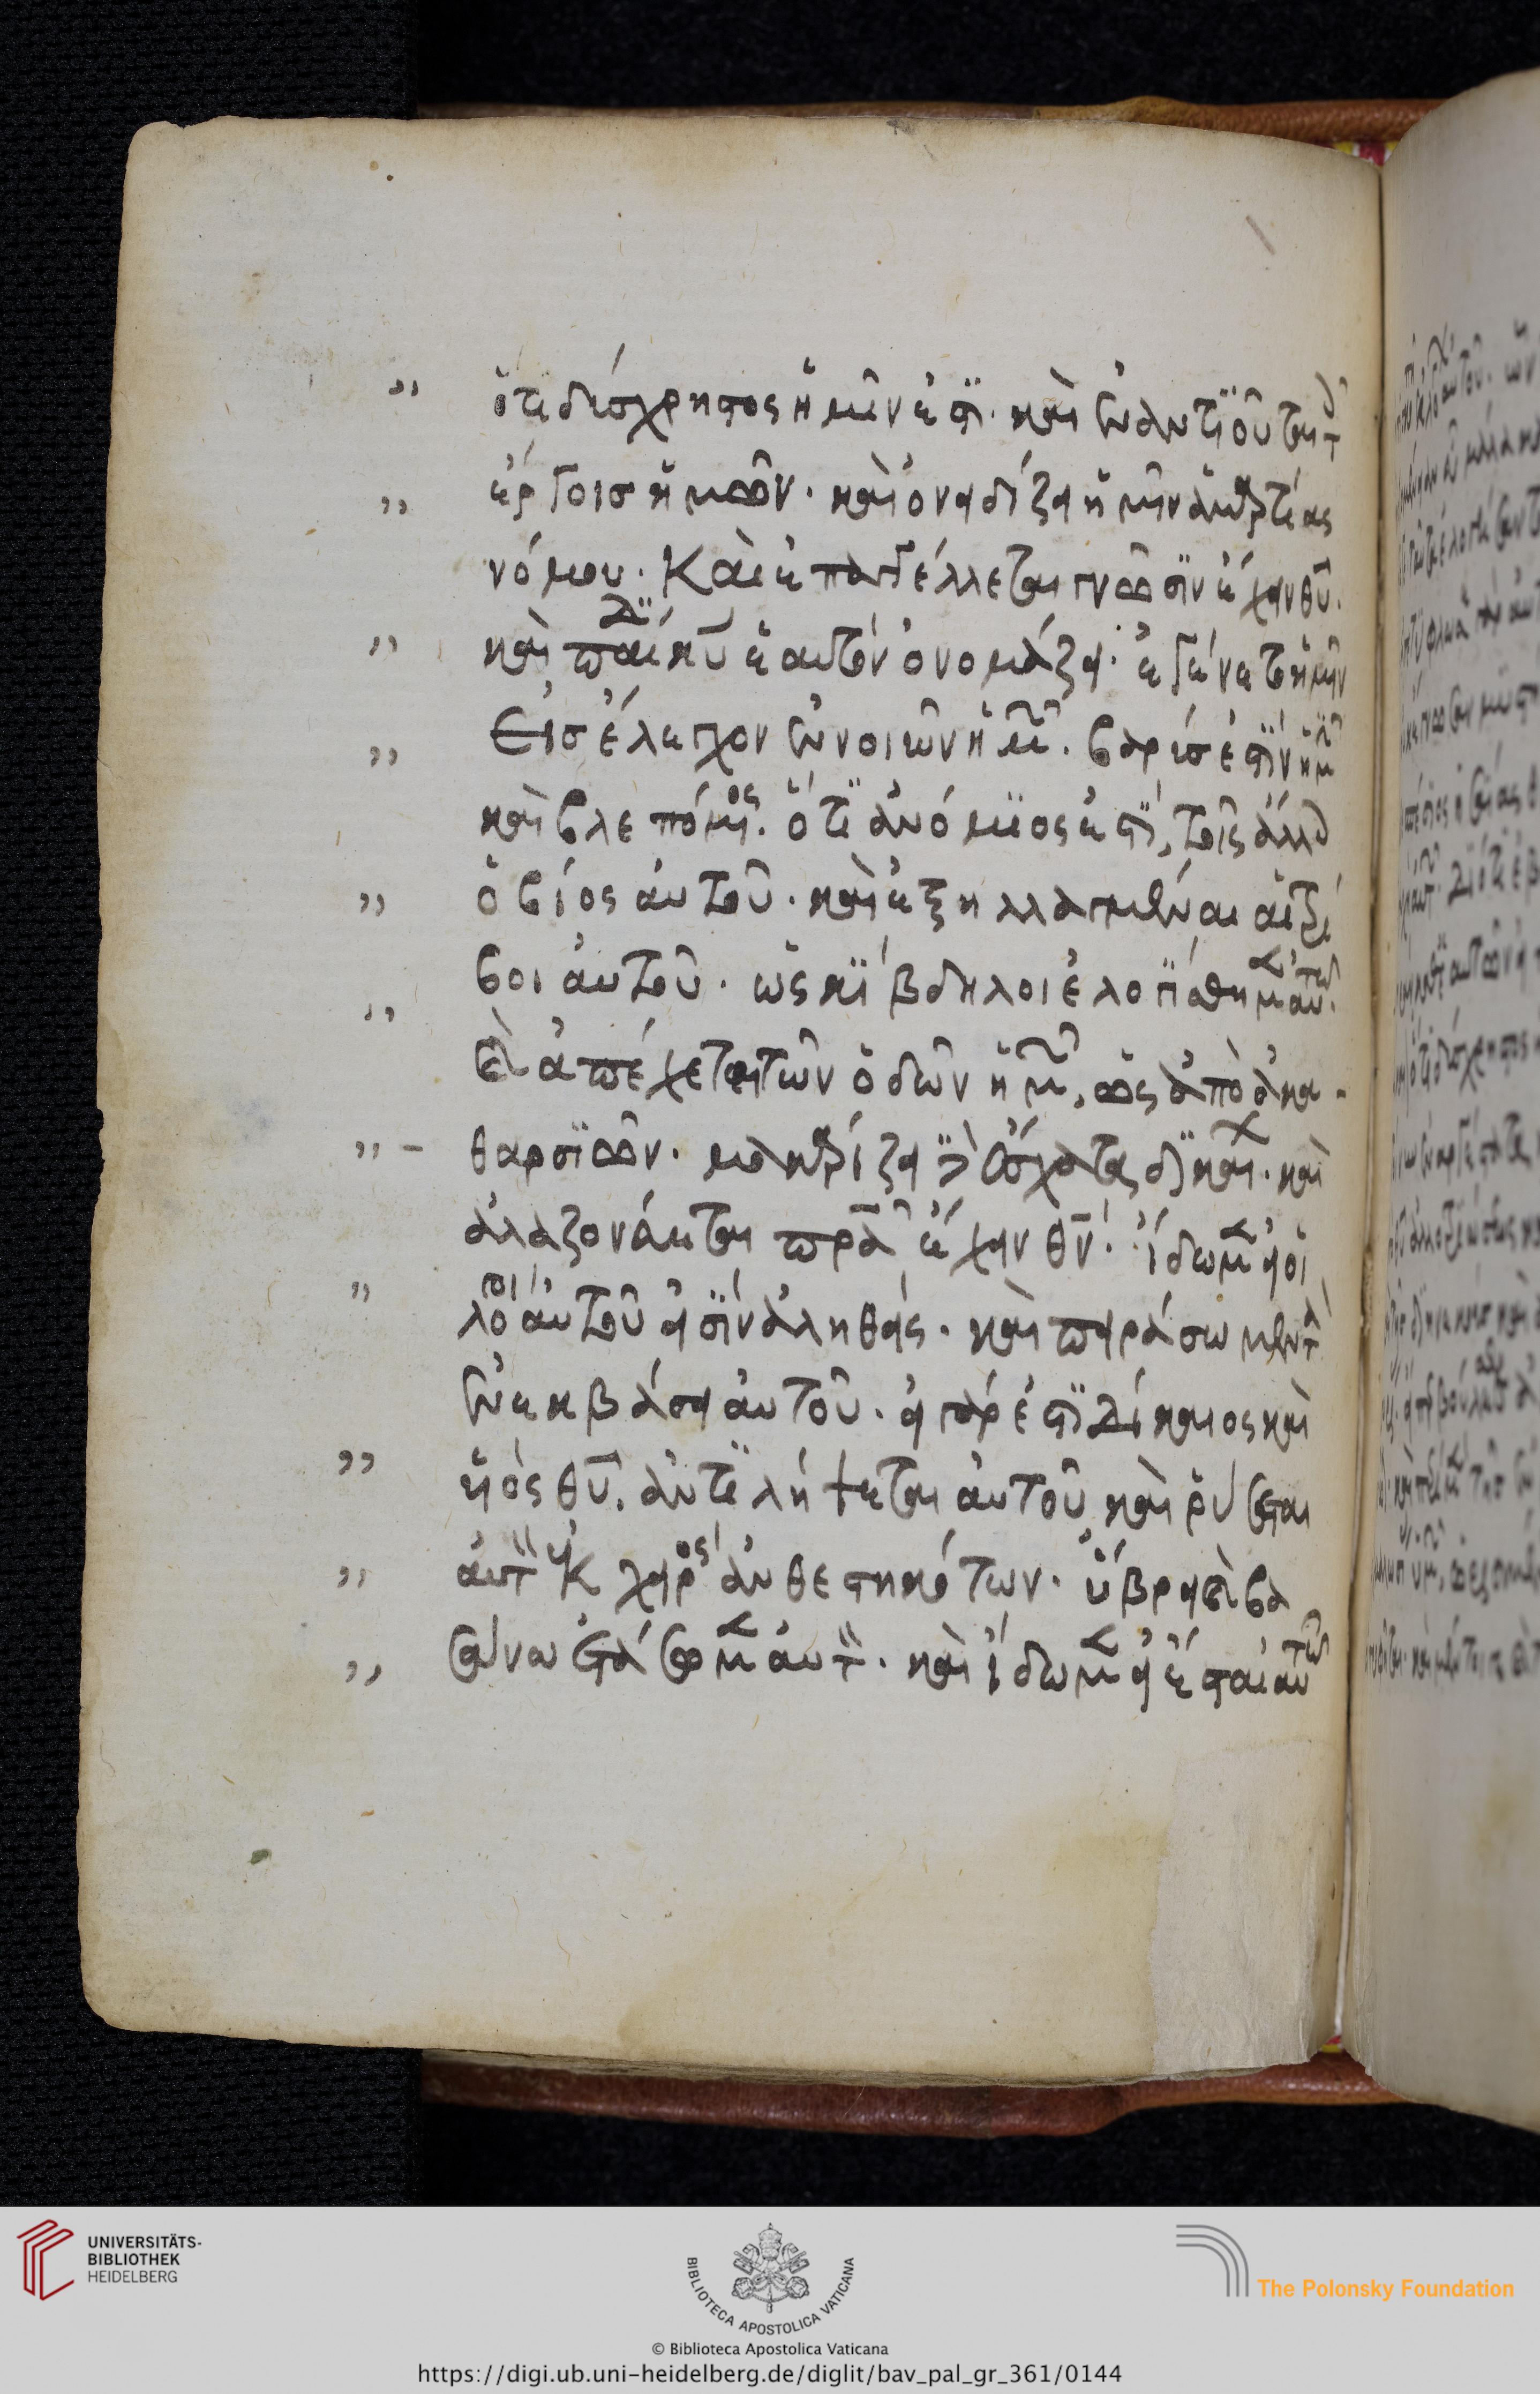 ὅτι δύσχρηστος ἡμῖν ἐστι· καὶ ἐναντιοῦται τοῖς
ἔργοις ἡμῶν· καὶ ὀνειδίζει ἡμῖν ἁμαρτίας
νόμου· Καὶ ἐπαγγέλλεται γνῶσιν ἔχειν θῦ·
καὶ παῖδα κῦ ἑαυτὸν ὀνομάζει· ἐγένετο ἡμῖν
Εἰς ἔλεγχον ἐννοιῶν ἡμῶν· βαρύς ἐστιν ἡμῖν
καὶ βλεπόμενος· ὅτι ἀνόμοιος ἐστὶ, τοῖς ἄλλοις
ὁ βίος αὐτοῦ· καὶ ἐξηλλαγμέναι αἱ τρί
βοι αὐτοῦ· ὡς κίβδηλοι ἐλογίσθημεν αὐτῷ·
καὶ ἀπέχεται τῶν ὁδῶν ἡμῶν, ὡς ἀπὸ ἀκα-
θαρσιῶν· μακαρίζει ἔσχατα δικαίων· καὶ
ἀλαζονεύεται πρα ἔχειν θν· ἴδωμεν εἰ οἱ
λόγοι αὐτοῦ εἰσὶν ἀληθεῖς· καὶ πειράσωμεν τὰ
ἐν ἐκβάσει αὐτοῦ· εἰ γάρ ἐστι δίκαιος καὶ
υἱὸς θῦ· ἀντιλήψεται αὐτοῦ καὶ ῥύσεται
αὐτὸν ἐκ χειρὸς ἀνθεστηκότων· ὕβρει καὶ βα
σάνω ἐτάσωμεν αὐτὸν· καὶ ἴδωμεν εἰ ἔσται αὐτῷ
UNIVERSITÄTS-
BIBLIOTHEK
HEIDELBERG
BIBLIOTECA APOSTOLICA VATICANA
The Polonsky Foundation
© Biblioteca Apostolica Vaticana
https://digi.ub.uni-heidelberg.de/diglit/bav_pal_gr_361/0144